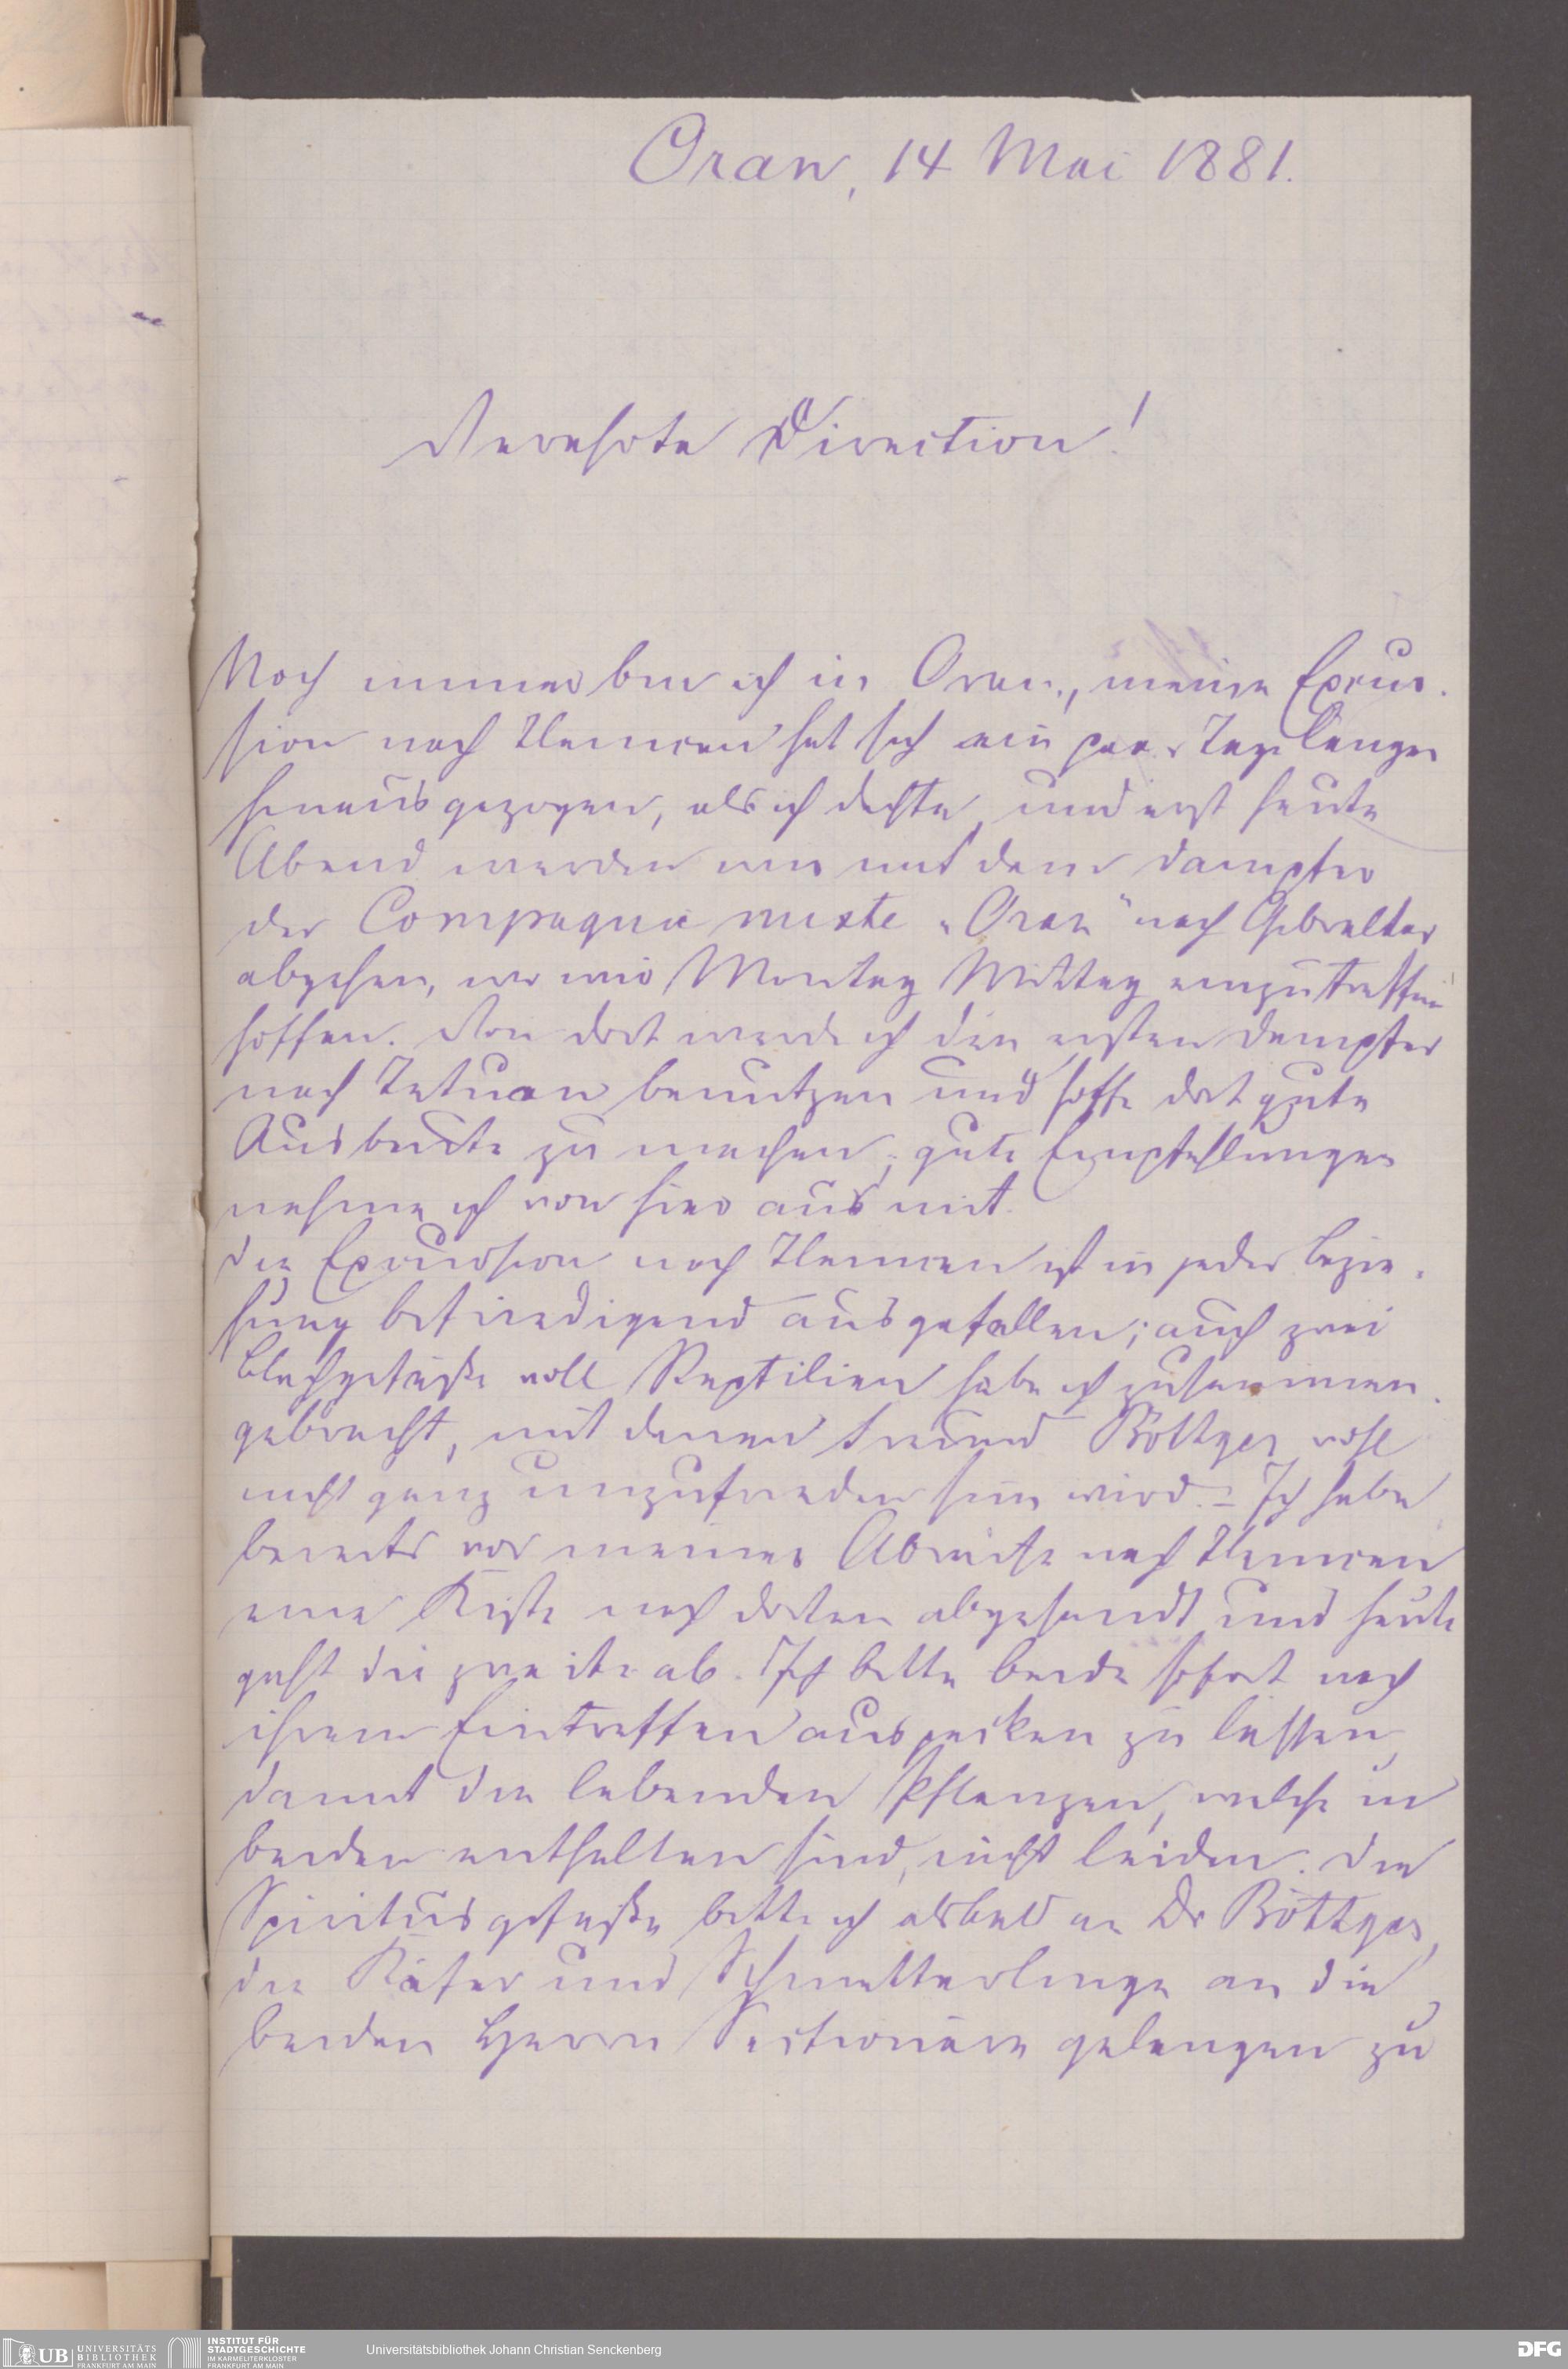 Oran, 14 Mai 1881.
Verehrte Direction!
Noch immer bin ich in Oran, meine Excur-
sion nach Tlemcen hat sich ein paar Tage länger
hinausgezogen, als ich dachte und erst heute
Abend werden wir mit dem Dampfer
der Compagnie mixte „Oran" nach Gibraltar
abgehen, wo wir Montag Mittag einzutreffen
hoffen. Von dort werde ich den ersten Dampfer
nach Tetuan benutzen und hoffe dort gute
Ausbeute zu machen; gute Empfehlungen
nehme ich von hier aus mit.
Die Excursion nach Tlemcen ist in jeder Bezie-
hung befriedigend ausgefallen; auch zwei
Blechgefäße voll Reptilien habe ich zusammen-
gebracht, mit denen Freund Böttger wohl
nicht ganz unzufrieden sein wird. – Ich habe
bereits vor meiner Abreise nach Tlemcen
eine Kiste nach dorten abgesandt und heute
geht die zweite ab. Ich bitte beide sofort nach
ihrem Eintreffen auspacken zu lassen,
damit die lebenden Pflanzen, welche in
beiden enthalten sind, nicht leiden. Die
Spiritusgefäße bitte ich alsbald an Dr Böttger,
die Käfer und Schmetterlinge an die
beiden Herrn Sectionäre gelangen zu
UB UNIVERSITÄTS
BIBLIOTHEK
FRANKFURT AM MAIN
INSTITUT FÜR
STADTGESCHICHTE
IM KARMELITERKLOSTER
FRANKFURT AM MAIN
Universitätsbibliothek Johann Christian Senckenberg
DFG